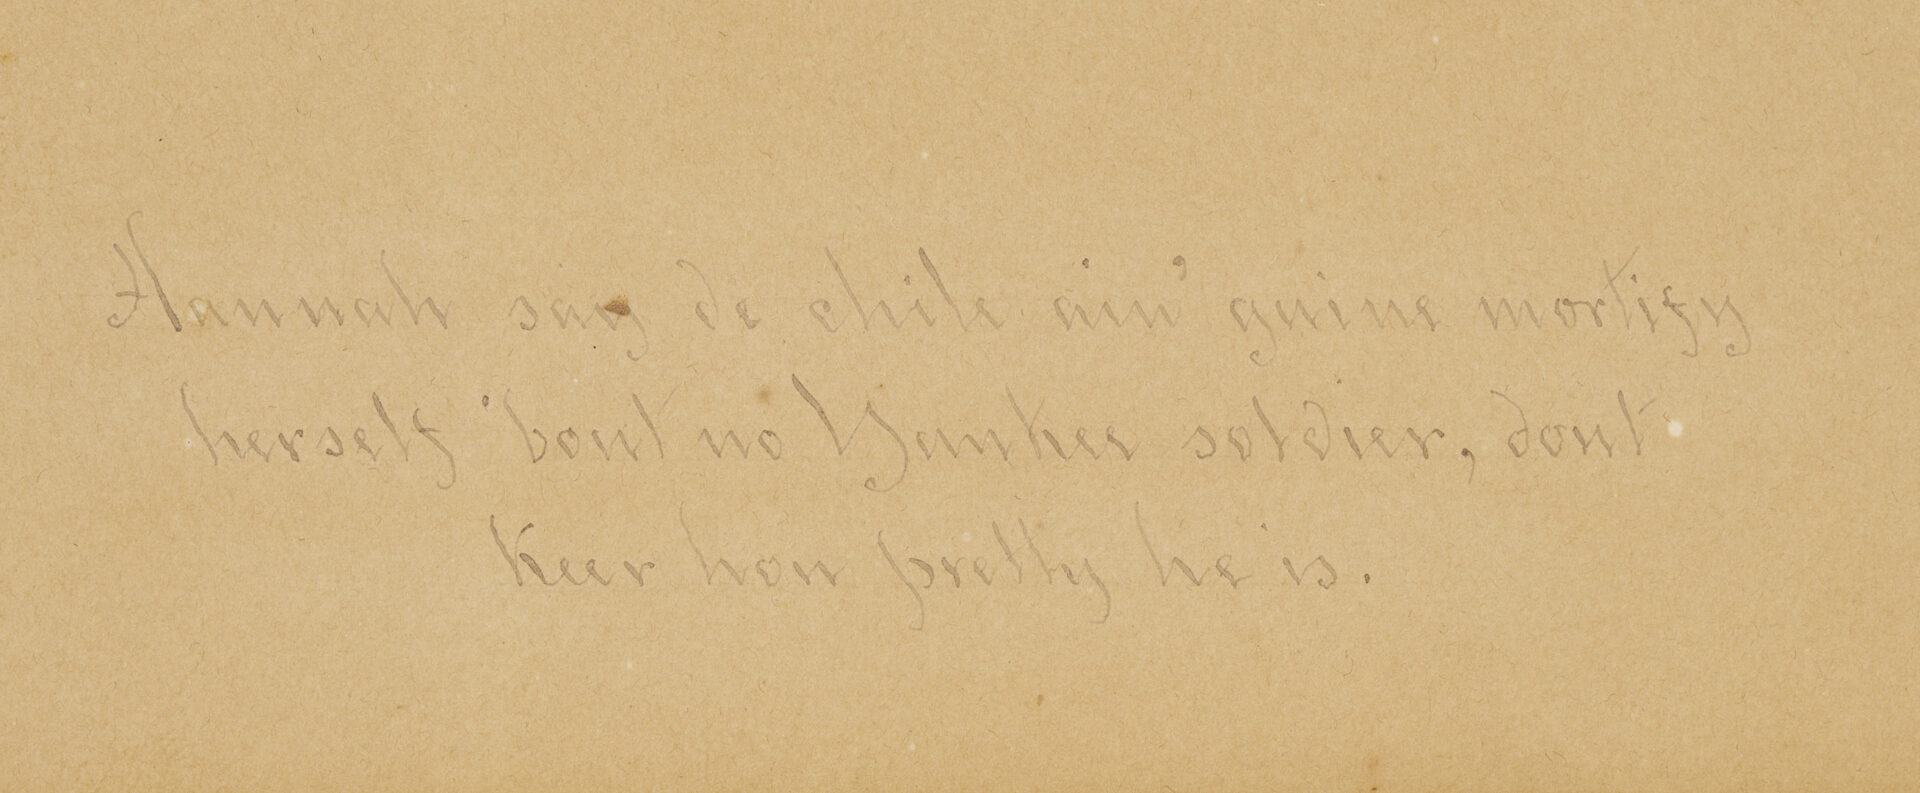 Hannah say de chile ain' guine mortify
herself 'bout no Yankee soldier, dont
keer how pretty he is.